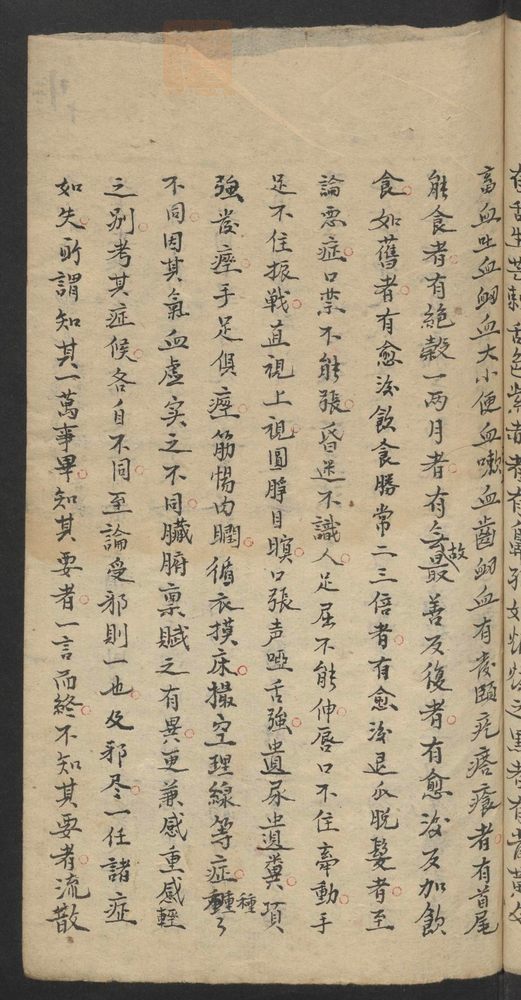 有舌生芒刺舌色紫者有鼻孔如煤
畜血吐血衂血大小便血嗽血齒衂血有發頤疙瘩瘡者有首尾
能食者有絕穀一两月者有無故最善反復者有愈後反加飲
食如舊者有愈後飲食勝常二三倍者有愈後退爪脫髮者至
論惡症口禁不能張昏迷不識人足屈不能伸唇口不住牽動手
足不住振戦直視上視圓睁目瞑口張声啞舌強遺尿遺糞項
強發痙手足俱痙筋惕肉瞤循衣摸床撮空理線等症種種
不同因其氣血虛实之不同臟腑禀賦之有異更兼感重感輕
之别考其症候各自不同至論受邪則一也及邪尽一任諸症
如失所謂知其一萬事畢知其要者一言而終不知其要者流散